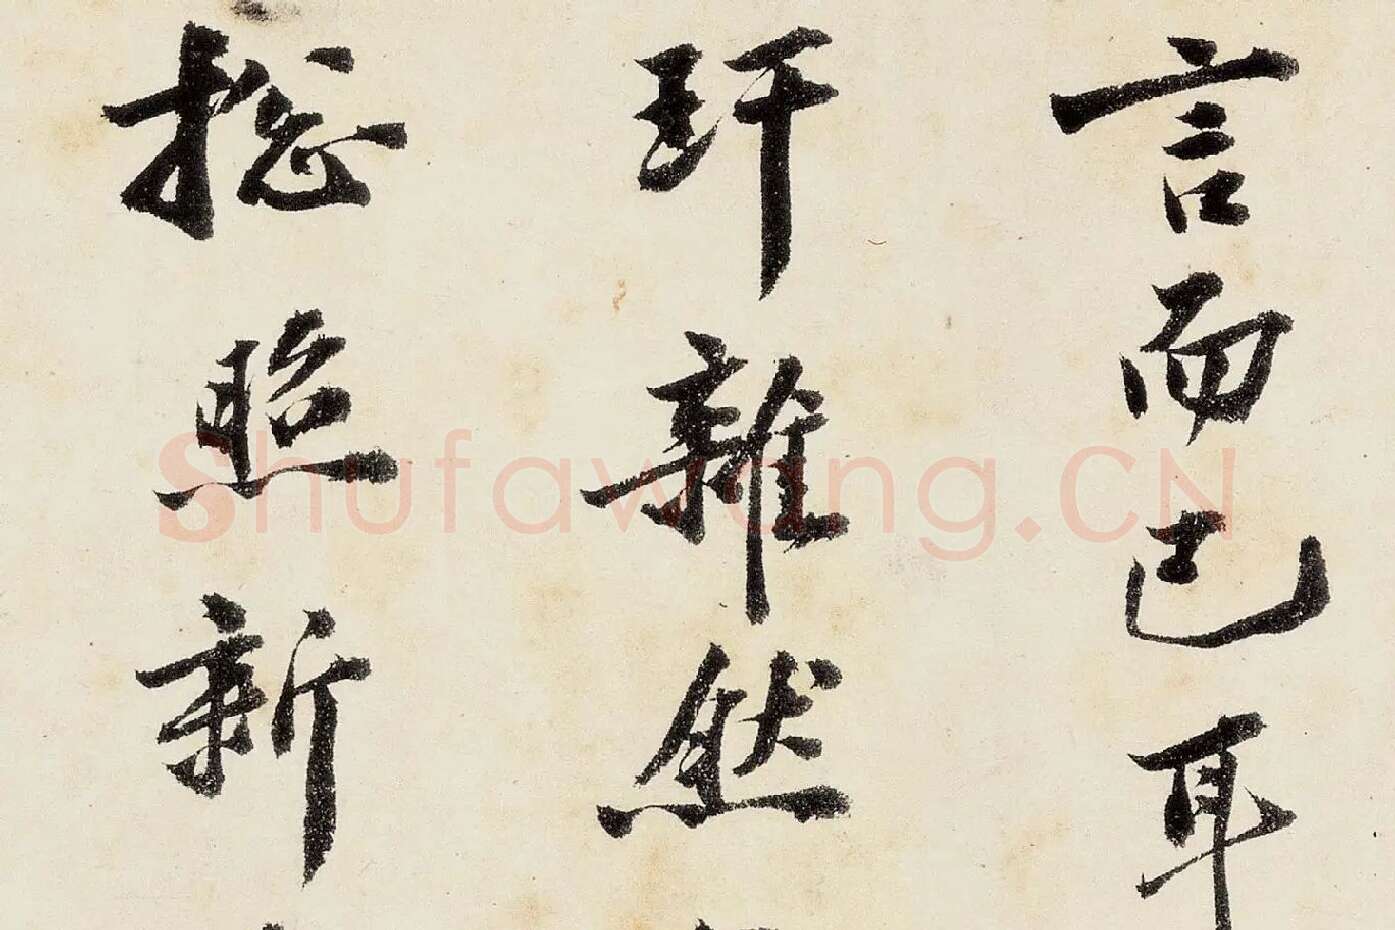 言而已耳
玕雜然
揔照新
Shufawang.CN